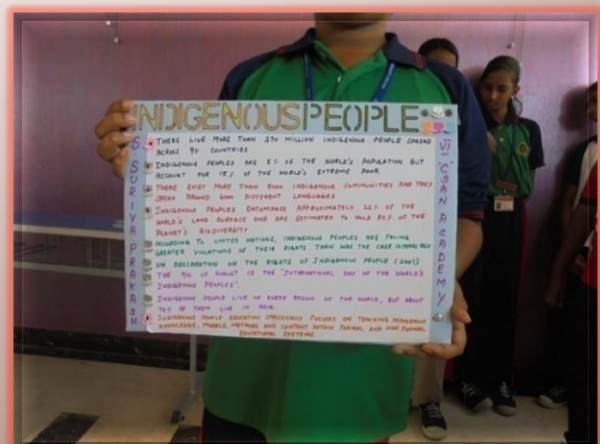 INDIGENOUS PEOPLE
S. SURIYA PRAKASH
THERE LIVE MORE THAN 370 MILLION INDIGENOUS PEOPLE SPREAD
ACROSS 90 COUNTRIES
INDIGENOUS PEOPLES ARE 5% OF THE WORLD'S POPULATION BUT
ACCOUNT FOR 15% OF THE WORLD'S EXTREME POOR
THERE EXIST MORE THAN 5000 INDIGENOUS COMMUNITIES AND THEY
SPEAK AROUND 4000 DIFFERENT LANGUAGES
INDIGENOUS PEOPLES ENCOMPASS APPROXIMATELY 22% OF THE
WORLD'S LAND SURFACE AND ARE ESTIMATED TO HOLD 80% OF THE
PLANET'S BIODIVERSITY
ACCORDING TO UNITED NATIONS, INDIGENOUS PEOPLES ARE FACING
GREATER VIOLATIONS OF THEIR RIGHTS THAN WAS THE CASE
UN DECLARATION ON THE RIGHTS OF INDIGENOUS PEOPLE (2007)
THE 9th OF AUGUST IS THE "INTERNATIONAL DAY OF THE WORLD'S
INDIGENOUS PEOPLES".
INDIGENOUS PEOPLE LIVE IN EVERY REGION OF THE WORLD, BUT ABOUT
70% OF THEM LIVE IN ASIA
INDIGENOUS PEOPLE EDUCATION SPECIFICALLY FOCUSES ON TEACHING INDIGENOUS
KNOWLEDGE, MODELS, METHODS AND CONTENT WITHIN FORMAL AND NON FORMAL
EDUCATIONAL SYSTEMS.
VI 'C' SAN ACADEMY